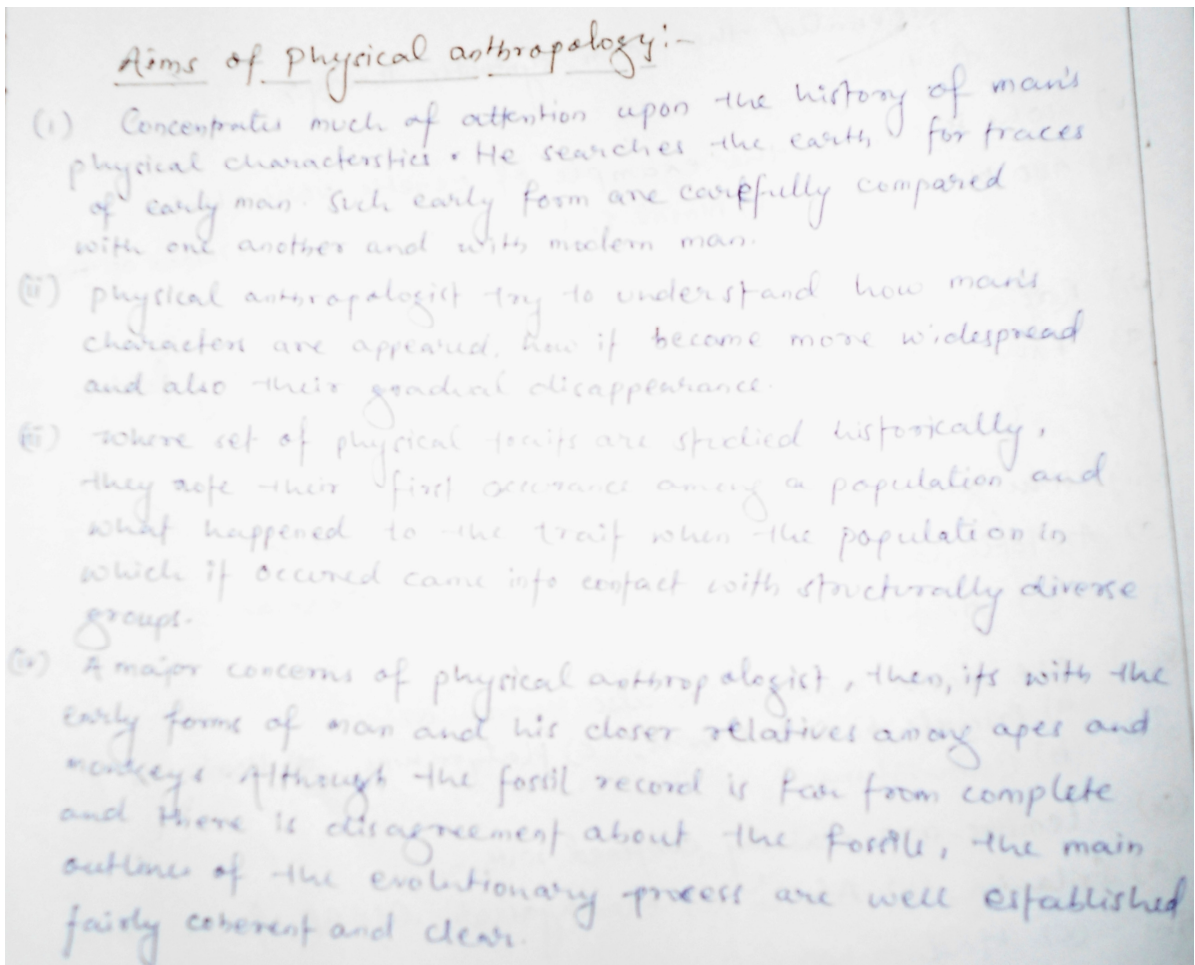 Aims of Physical anthropology:-
(i) Concentrates much of attention upon the history of man's
physical characterstics. He searches the earth for traces
of early man. Such early form are carefully compared
with one another and with modern man.
(ii) physical anthropologist try to understand how man's
characters are appeared, how it became more widespread
and also their gradual disappearance.
(iii) where set of physical traits are studied historically,
they note their first occurance among a population and
what happened to the trait when the population in
which it occured came into contact with structurally diverse
groups.
(iv) A major concerns of physical anthropologist, then, its with the
early forms of man and his closer relatives among apes and
monkeys. Although the fossil record is far from complete
and there is disagreement about the fossils, the main
outlines of the evolutionary process are well established
fairly coherent and clear.